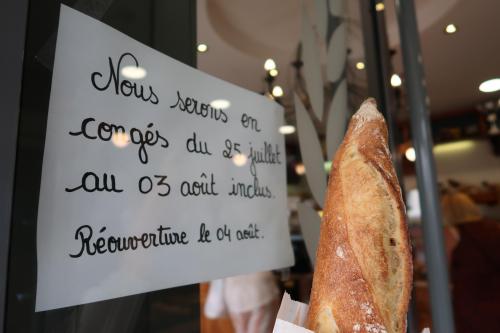 Nous serons en
congés du 25 juillet
au 03 août inclus.
Réouverture le 04 août.